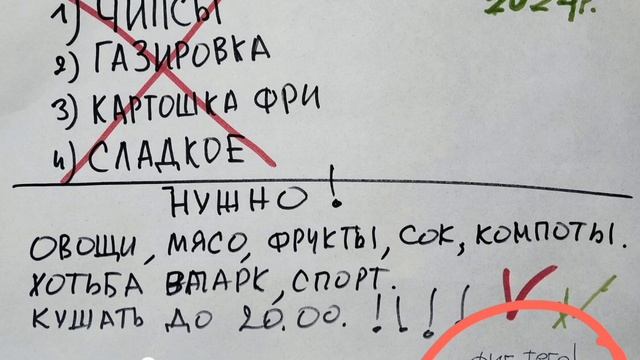 2024г.
1) ЧИПСЫ
2) ГАЗИРОВКА
3) КАРТОШКА ФРИ
4) СЛАДКОЕ
НУЖНО!
ОВОЩИ, МЯСО, ФРУКТЫ, СОК, КОМПОТЫ.
ХОТЬБА В ПАРК, СПОРТ.
КУШАТЬ ДО 20.00. !!!!